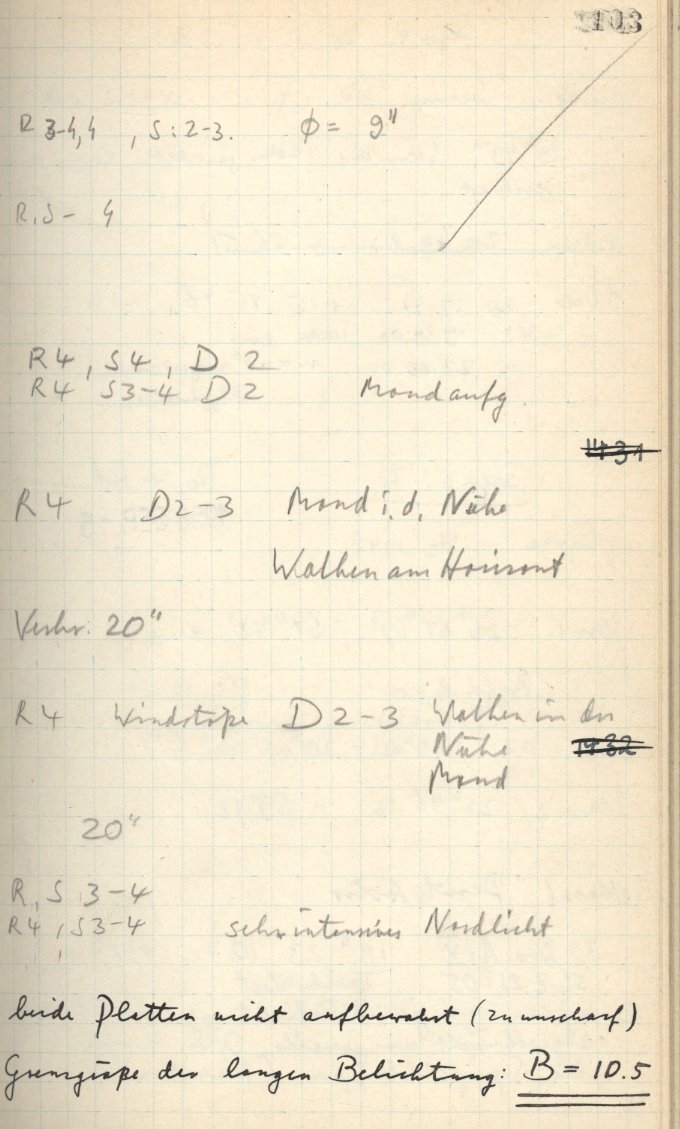 103
R 3-4,4 , S: 2-3. ϕ = 9"
R,S - 4
R4, S4, D 2
R4 S3-4 D2 Mondaufg.
1131
R4 D2-3 Mond i. d. Nähe
Wolken am Horizont
20"
R4 Windstöße D2-3 Wolken in der
Nähe
1132
Mond
20"
R,S 3-4
R4, S3-4 sehr intensives Nordlicht
beide Platten nicht aufbewahrt (zu unscharf)
Grenzgröße der langen Belichtung: B = 10.5